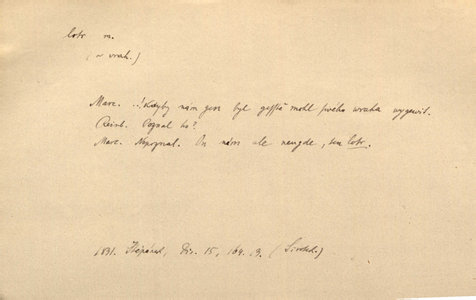 lotr m.
(= vrah.)
Marc. ..! Kdyby nám gen byl gesstě mohl swého wraha wygewit.
Reinb. Poznal ho?
Marc. Nepoznal. On nám ale neugde, ten lotr.
1831. Štěpánek, Div. 15, 164. 9. (Sirotek.)